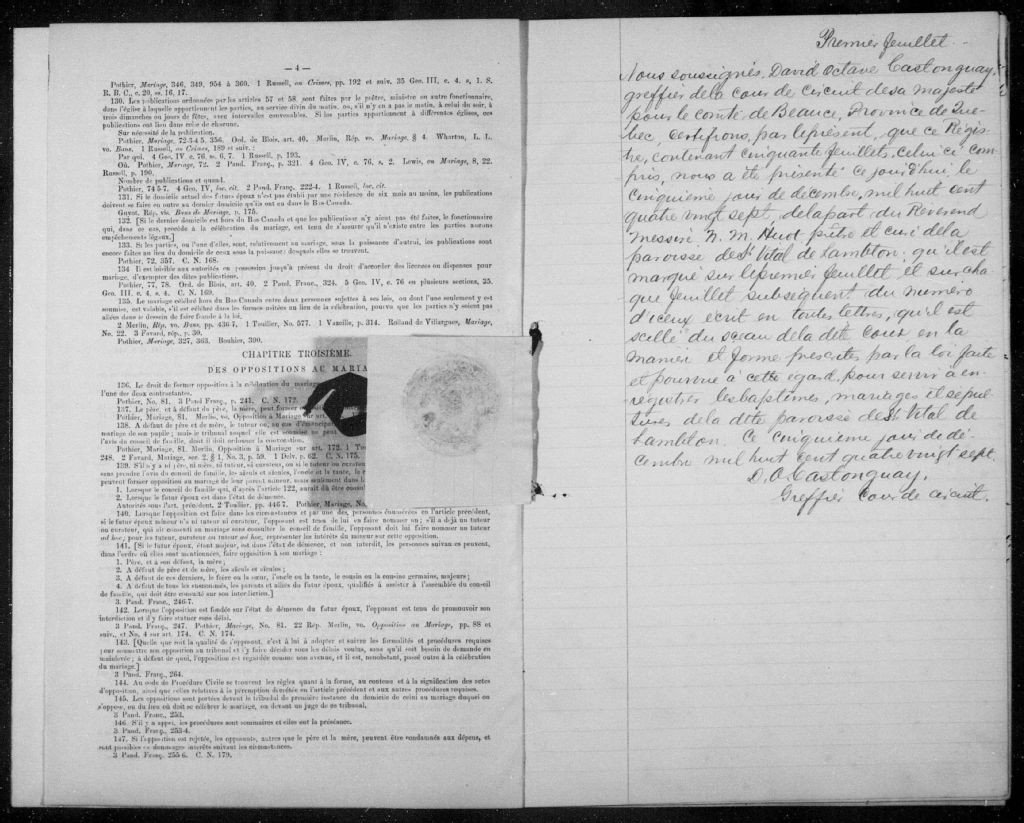 — 4 —
Pothier, Mariage, 346, 349, 954 à 360. 1 Russell, on Crimes, pp. 192 et suiv. 35 Geo. III, c. 4, s. 1. S.
R. B. C., c. 20, ss. 16, 17.
130. Les publications ordonnées par les articles 57 et 58, sont faites par le prêtre, ministre ou autre fonctionnaire,
dans l'église à laquelle appartiennent les parties, au service divin du matin, ou, s'il n'y en a pas le matin, à celui du soir, à
trois dimanches ou jours de fêtes, avec intervalles convenables. Si les parties appartiennent à différentes églises, ces
publications ont lieu dans celle de chacune.
Sur nécessité de la publication.
Pothier, Mariage, 72-3-4 5, 356. Ord. de Blois, art. 40. Merlin, Rép. vo. Mariage, § 4. Wharton, L. L.
vo. Bans. 1 Russell, on Crimes, 189 et suiv.:
Par qui. 4 Geo. IV, c. 76, s. 6, 7. 1 Russell, p. 193.
Où. Pothier, Mariage, 72. 2 Pand. Franç., p. 321. 4 Geo. IV, c. 76, s. 2. Lewis, on Mariage, 8, 22.
Russell, p. 190.
Nombre de publications et quand.
Pothier, 74 5-7. 4 Geo. IV, loc. cit. 2 Pand. Franç., 222-4. 1 Russell, loc. cit.
131. Si le domicile actuel des futurs époux n'est pas établi par une résidence de six mois au moins, les publications
doivent se faire en outre au dernier domicile qu'ils ont eu dans le Bas-Canada.
Guyot, Rép. vis. Bans de Mariage, p. 175.
132. [Si le dernier domicile est hors du Bas-Canada et que les publications n'y aient pas été faites, le fonctionnaire
qui, dans ce cas, procède à la célébration du mariage, est tenu de s'assurer qu'il n'existe entre les parties aucuns
empêchements légaux.]
133. Si les parties, ou l'une d'elles, sont, relativement au mariage, sous la puissance d'autrui, les publications sont
encore faites au lieu du domicile de ceux sous la puissance desquels elles se trouvent.
Pothier, 72, 357. C. N. 168.
134 Il est loisible aux autorités en possession jusqu'à présent du droit d'accorder des licences ou dispenses pour
mariage, d'exempter des dites publications.
Pothier, 77, 78. Ord. de Blois, art. 40. 2 Pand. Franç., 324. 5 Geo. IV, c. 76 en plusieurs sections, 25.
Geo. III, c. 4, s. 4. C. N. 169.
135. Le mariage célébré hors du Bas-Canada entre deux personnes sujettes à ses lois, ou dont l'une seulement y est
soumise, est valable, s'il est célébré dans les formes usitées au lieu de la célébration, pourvu que les parties n'y soient pas
allées dans le dessein de faire fraude à la loi.
2 Merlin, Rép. vo. Bans, pp. 436-7. 1 Toullier, No. 577. 1 Vazeille, p. 314. Rolland de Villargues, Mariage,
No. 22. 3 Favard, rép., p. 30.
Pothier, Mariage, 327, 363. Bouhier, 390.
CHAPITRE TROISIÈME.
DES OPPOSITIONS AU MARIA
136. Le droit de former opposition à la célébration du mariage
l'une des deux contractantes.
Pothier, No. 81. 3 Pand Franç., p. 241. C. N. 172.
137. Le père, et à défaut du père, la mère, peut former
Pothier, Mariage, 81. Merlin, vo. Opposition à Mariage sur art.
138. A défaut de père et de mère, le tuteur ou, au cas d'émancipati
mariage de son pupille; mais le tribunal auquel elle est soumise ne peut
l'avis du conseil de famille, dont il doit ordonner la convocation.
Pothier, Mariage, 81. Merlin, Opposition à Mariage sur art. 172. 1 Tou
248. 2 Favard, Mariage, sec. 2 § 1, No. 3, p. 59. 1 Delv. p. 62. C. N. 175.
139. S'il n'y a ni père, ni mère, ni tuteur, ni curateur, ou si le tuteur ou curateur
sans prendre l'avis du conseil de famille, les aïeuls et aïeules, l'oncle et la tante, le c
peuvent former opposition au mariage de leur parent mineur, mais seulement dans l
1. Lorsque le conseil de famille qui, d'après l'article 122, aurait dû être consul
2. Lorsque le futur époux est dans l'état de démence.
Autorités sous l'art. précédent. 2 Toullier, pp. 446 7. Pothier, Mariage, No.
140. Lorsque opposition est faite dans les circonstances et par une des personnes énumérées en l'article précédent,
si le futur époux mineur n'a ni tuteur ni curateur, l'opposant est tenu de lui en faire nommer un; s'il a déjà un tuteur
ou curateur, qui ait consenti au mariage sans consulter le conseil de famille, l'opposant doit lui faire nommer un tuteur
ad hoc; pour les tuteur, curateur ou tuteur ad hoc, représenter les intérêts du mineur sur cette opposition.
141. [Si le futur époux, étant majeur, est dans l'état de démence, et non interdit, les personnes suivantes peuvent,
dans l'ordre où elles sont mentionnées, faire opposition à son mariage:
1. Père, et à son défaut, la mère;
2. A défaut de père et de mère, les aïeuls et aïeules;
3. A défaut de ces derniers, le frère ou la sœur, l'oncle ou la tante, le cousin ou la cousine germains, majeurs;
4. A défaut de tous les susnommés, les parents et alliés du futur époux, qualifiés à assister à l'assemblée du conseil
de famille, qui doit être consulté sur son interdiction.]
3. Pand. Franc., 246-7.
142. Lorsque l'opposition est fondée sur l'état de démence du futur époux, l'opposant est tenu de promouvoir son
interdiction et d'y faire statuer sans délai.
3 Pand. Franç., 247. Pothier, Mariage, No. 81. 22 Rép. Merlin, vo. Opposition au Mariage, pp. 88 et
suiv., et No. 4 sur art. 174. C. N. 174.
143. [Quelle que soit la qualité de l'opposant, c'est à lui à adopter et suivre les formalités et procédures requises
pour soumettre son opposition au tribunal et l'y faire décider sous les délais voulus, sans qu'il soit besoin de demande en
mainlevée; à défaut de quoi, l'opposition est regardée comme non avenue, et il est, nonobstant, passé outre à la célébration
du mariage.]
3 Pand. Franç., 264.
144. Au code de Procédure Civile se trouvent les règles quant à la forme, au contenu et à la signification des actes
d'opposition, ainsi que celles relatives à la péremption décrétée en l'article précédent et aux autres procédures requises.
145. Les oppositions sont portées devant le tribunal de première instance du domicile de celui au mariage duquel on
s'oppose, ou du lieu où doit se célébrer le mariage, ou devant un juge de ce tribunal.
3 Pand. Franc., 253.
146. S'il y a appel, les procédures sont sommaires et elles ont la préséance.
3 Pand. Franc., 253-4.
147. Si l'opposition est rejetée, les opposants, autres que le père et la mère, peuvent être condamnés aux dépens, et
sont passibles de dommages intérêts suivant les circonstances.
3 Pand. Franç. 255-6. C. N. 179.
Premier feuillet.
Nous soussignés, David Octave Castonguay,
greffier de la cour de circuit de sa majesté
pour le comté de Beauce, Province de Qué-
bec, certifions, par le présent, que ce Régis-
tre, contenant cinquante feuillets, celui ci com-
pris, nous a été présenté ce jourd'hui, le
cinquième jour de décembre, mil huit cent
quatre vingt sept, de la part du Révérend
Messire N. M. Huot prêtre et curé de la
paroisse de St Vital de Lambton, qu'il est
marqué sur le premier feuillet et sur cha-
que feuillet subséquent du numéro
d'iceux écrit en toutes lettres, qu'il est
scellé du sceau de la dite cour en la
manière et forme prescrites par la loi faite
et pourvue à cette égard, pour servir à en-
registrer les baptêmes, mariages et sépul-
tures de la dite paroisse de St Vital de
Lambton. Ce cinquième jour de dé-
cembre mil huit cent quatre vingt sept.
D. O. Castonguay,
Greffier Cour de circuit.